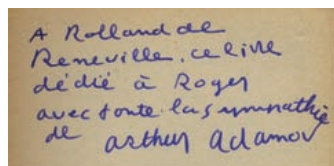 A Rolland de
Reneville, ce livre
dédié à Roger
avec toute la sympathie
de arthur adamov